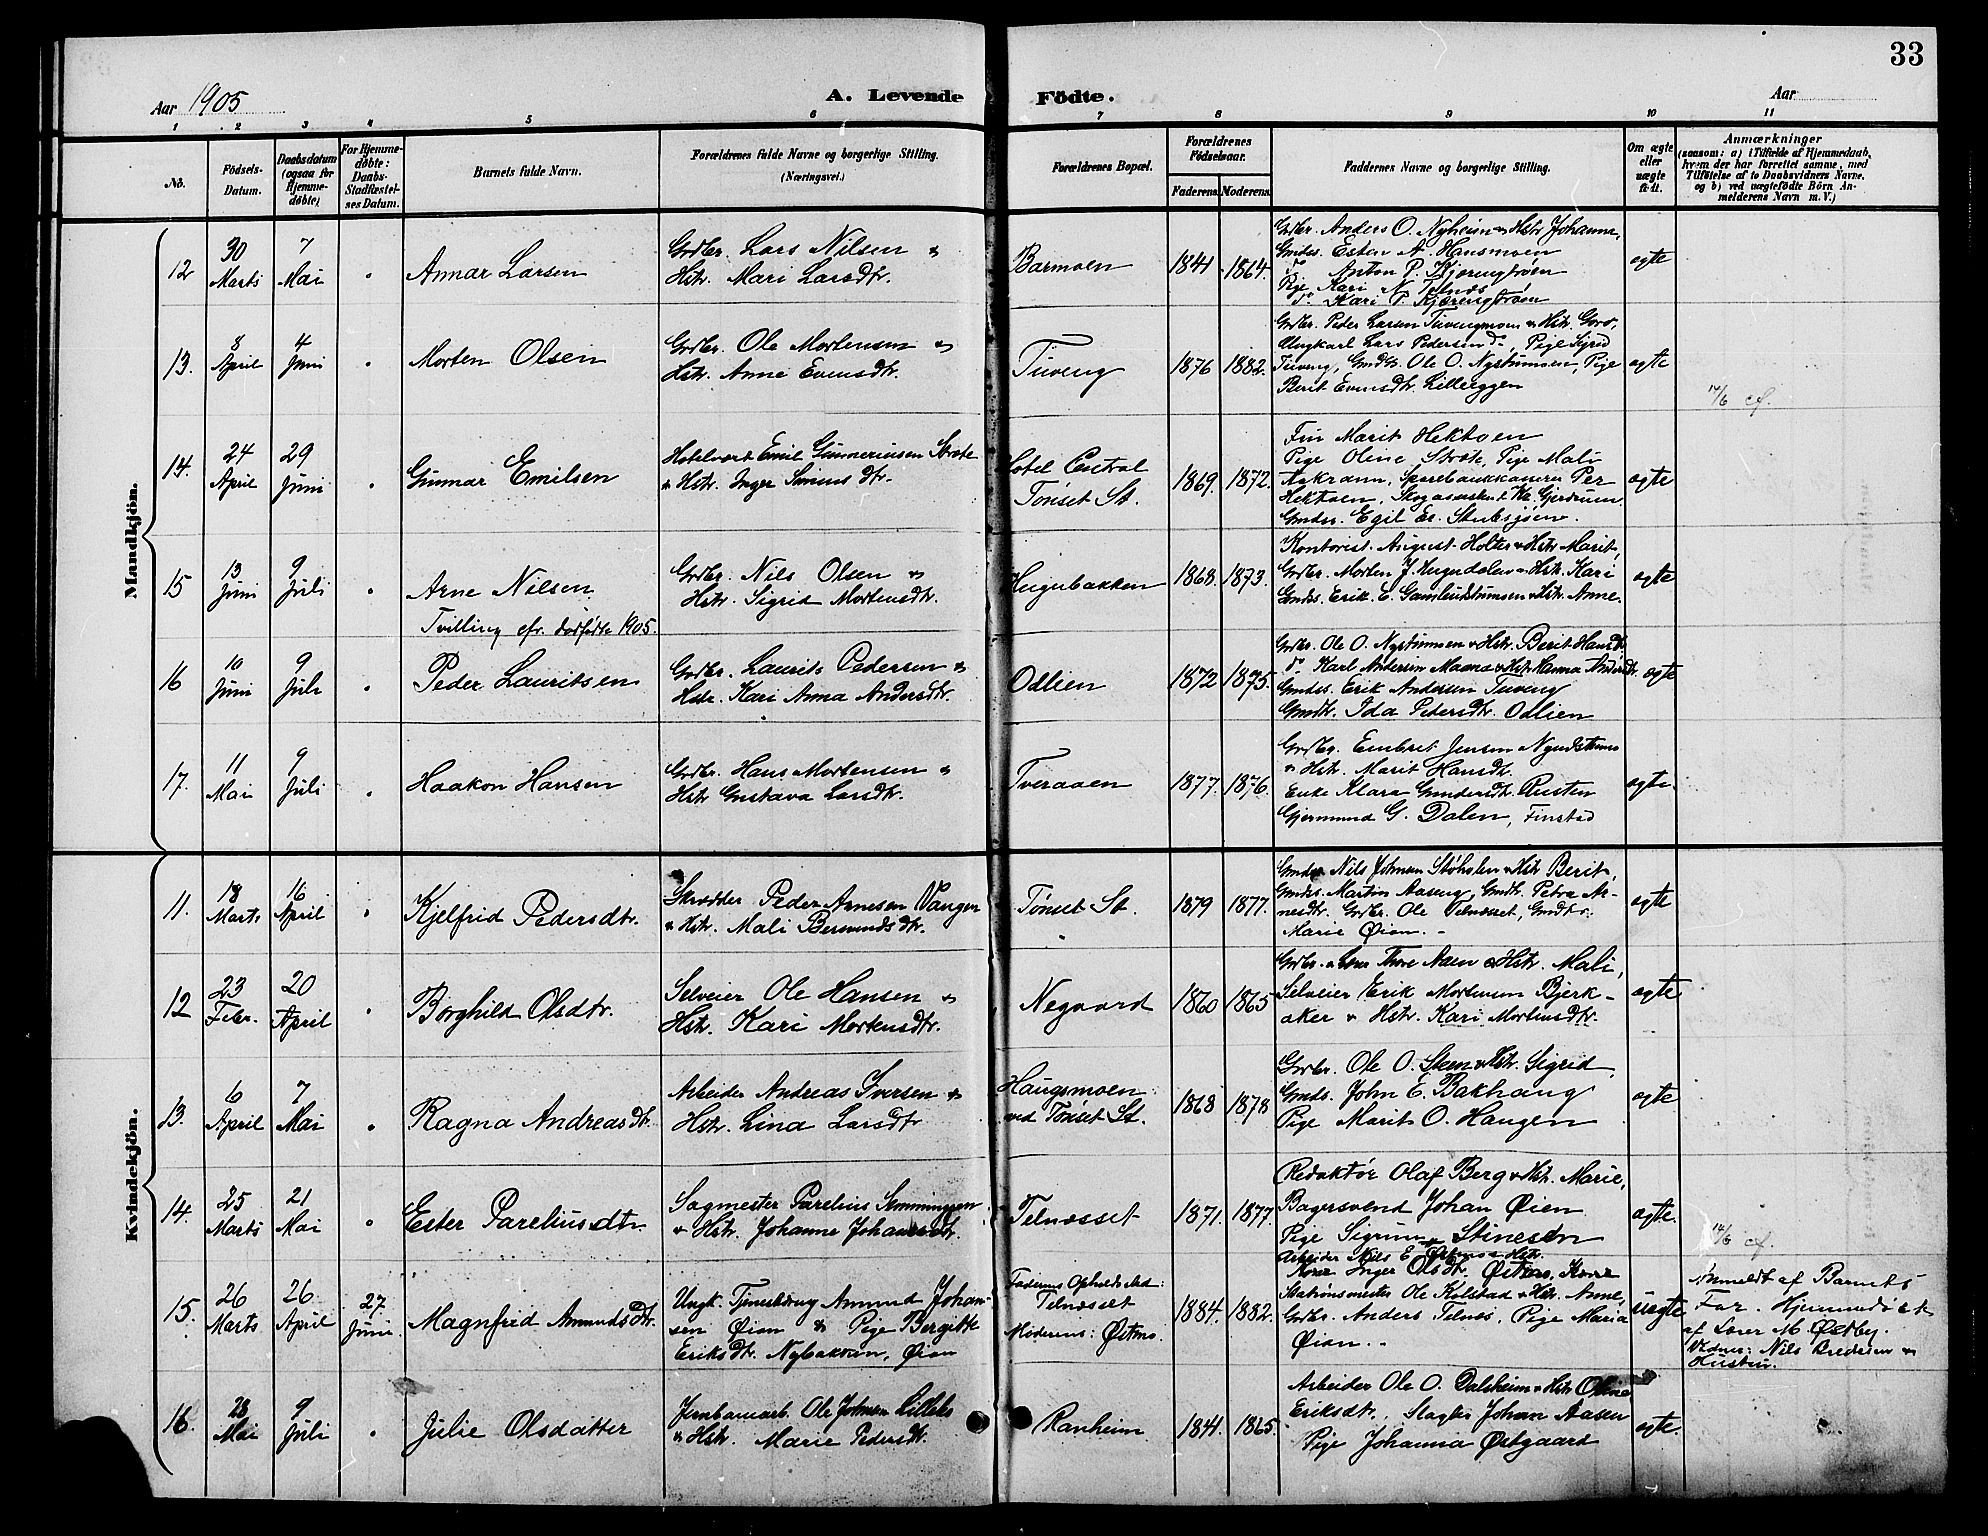 33
Aar 1905
A. Levende Födte.
Aar
1 2 3 4 5 6 7 8 9 10 11
No.
Födsels-Datum.
Daabsdatum (ogsaa for Hjemme-döbte)
For Hjemme-döbte: Daabs-Stadfæstel-ses Datum.
Barnets fulde Navn.
Forældrenes fulde Navne og borgerlige Stilling.
(Næringsvei.)
Forældrenes Bopæl.
Forældrenes Födselsaar.
Faderens. Moderens.
Faddernes Navne og borgerlige Stilling.
Om ægte eller uægte födt.
Anmærkninger
(saasom: a) i Tilfælde af Hjemmedaab,
hvem der har forrettet samme, med
Tilföielse af to Daabsvidners Navne,
og b) ved uægtefödte Börn An-
melderens Navn m.V.)
Mandkjön.
12 30 Marts 7 Mai " Annar Larsen
Grdbr. Lars Nilsen &
Hstr. Mari Larsdtr.
Barmoen 1841 1864.
Grdbr. Anders O. Nyheim & Hstr Johanna,
Gmds. Esten A. Hansmoen
do Anton P. Kjerengtrøen
Pige Kari N. Telnes
do. Kari P. Kjerengtrøen
ægte
13. 8 April 4 Juni " Morten Olsen
Grdbr. Ole Mortensen &
Hstr. Anne Evensdtr.
Tuveng 1876 1882.
Grdbr. Peder Larsen Tuvengmoen & Hstr. Goro,
Ungkarl Lars Pedersen do, Pige Sigrid
Tuveng, Gmdtr. Ole O. Nystumoen, Pige
Berit Evensdtr. Lilleeggen
ægte
14/6 cf.
14. 24 April 29 Juni " Gunnar Emilsen
Hotelvært Emil Gunneriusen Stræte
& Hstr. Inger Simensdtr.
Hotel Central
Tönset St. 1869. 1872.
Fru Marit Hektoen
Pige Oline Stræte, Pige Mali
Aakrann, Sparebankkasserer Per
Hektoen, Skogassistent Kr. Gjerdrum
Gmds. Egil Er. Stubsjøen.
ægte
15 13 Juni 9 Juli " Arne Nilsen
Tvilling cfr. dødfødte 1905.
Grdbr. Nils Olsen &
Hstr. Sigrid Mortensdtr.
Hugubakken 1868. 1873.
Kontorist August Holter & Hstr Marit,
Grdbr. Morten J. Hugudalen & Hstr. Kari
Gmds. Erik E. Gamlelstumoen & Hstr. Anne.
ægte
16 10 Juni 9 Juli " Peder Lauritsen
Grdbr. Laurits Pedersen &
Hstr. Kari Anna Andersdtr.
Odlien 1872 1875.
Grdbr. Ole O. Nystumoen & Hstr. Berit Hansdtr
do Karl Andersen Maana & Hstr Hanna Andersdtr.
Gmds. Erik Andersen Tuveng
Gmdtr. Ida Pedersdtr. Odlien
ægte
17. 11 Mai 9 Juli " Haakon Hansen
Grdbr. Hans Mortensen &
Hstr Gustava Larsdtr.
Tveraaen 1877. 1876.
Grdbr. Embret Jensen
& Hstr. Marit Hansdtr.
Enke Klara Gundersdtr. Rusten
Gjermund G. Dalen, Finstad
ægte.
Kvindekjön.
11. 18 Marts 16 April " Kjelfrid Pedersdtr.
Skrædder Peder Arnesen Vangen
& Hstr. Mali Bersvendsdtr.
Tønset St. 1879 1877.
Gmds. Nils Johnsen Støholen & Hstr Berit,
Gmds. Martin Aaseng, Gmdtr. Petra Ar-
nesdtr. Grdbr. Ole Telnesset, Gmdtr.
Marie Øian.
ægte
12 23 Febr. 20 April " Borghild Olsdtr.
Selveier Ole Hansen &
Hstr. Kari Mortensdtr.
Negaard 1860 1865
Grdbr. & Lærer Thore Aaen & Hstr. Mali,
Selveier Erik Mortensen Bjerk-
aker & Hstr. Kari Mortensdtr.
ægte
13. 6 April 7 Mai " Ragna Andreasdtr.
Arbeider Andreas Iversen &
Hstr. Lina Larsdtr
Haugsmoen
ved Tønset St. 1868 1878
Grdbr. Ole O. Steen & Hstr. Sigrid,
Gmds. John E. Bakhaug
Pige Marit O. Haugen
ægte
14. 25 Marts 21 Mai " Ester Pareliusdtr.
Sagmester Parelius Stenmingsen
& Hstr. Johanne Johansdtr.
Telnæsset 1871. 1877.
Redaktør Olaf Berg & Hstr. Marie,
Bagersvend Johan Øien
Pige Sigrun Stinesen
ægte.
14/6 cf.
15. 26 Marts 26 April 27 Juni. Magnfrid Amundsdtr.
Ungk. Tjenestedreng Amund Johan-
sen Øian & Pige Bergitte
Eriksdtr. Nybakvan, Øian
Faderens Opholdssted:
Telnæsset
Moderens: Østmo. 1884. 1882.
Arbeider Nils E. Østmo & Hstr.
Kone Inger Olsdtr. Østmo, Kone
Stationsmester Ole Kolstad & Hstr. Anne,
Grdbr. Anders Telnes, Pige Maria
Øian.
uægte
Anmeldt af Barnets
Far. Hjemmedøbt
af Lærer M. Østby.
Vidner: Nils Bredesen &
Hustru.
16. 28 Mai 9 Juli " Julie Olsdatter
Jernbanearb. Ole Johnsen Lillebo
& Hstr. Marie Pedersdtr.
Ranheim 1841. 1865.
Arbeider Ole O. Dalsheim & Hstr Oline
Eriksdtr., Slagter Johan Aasen
Pige Johanna Østgaard
ægte.